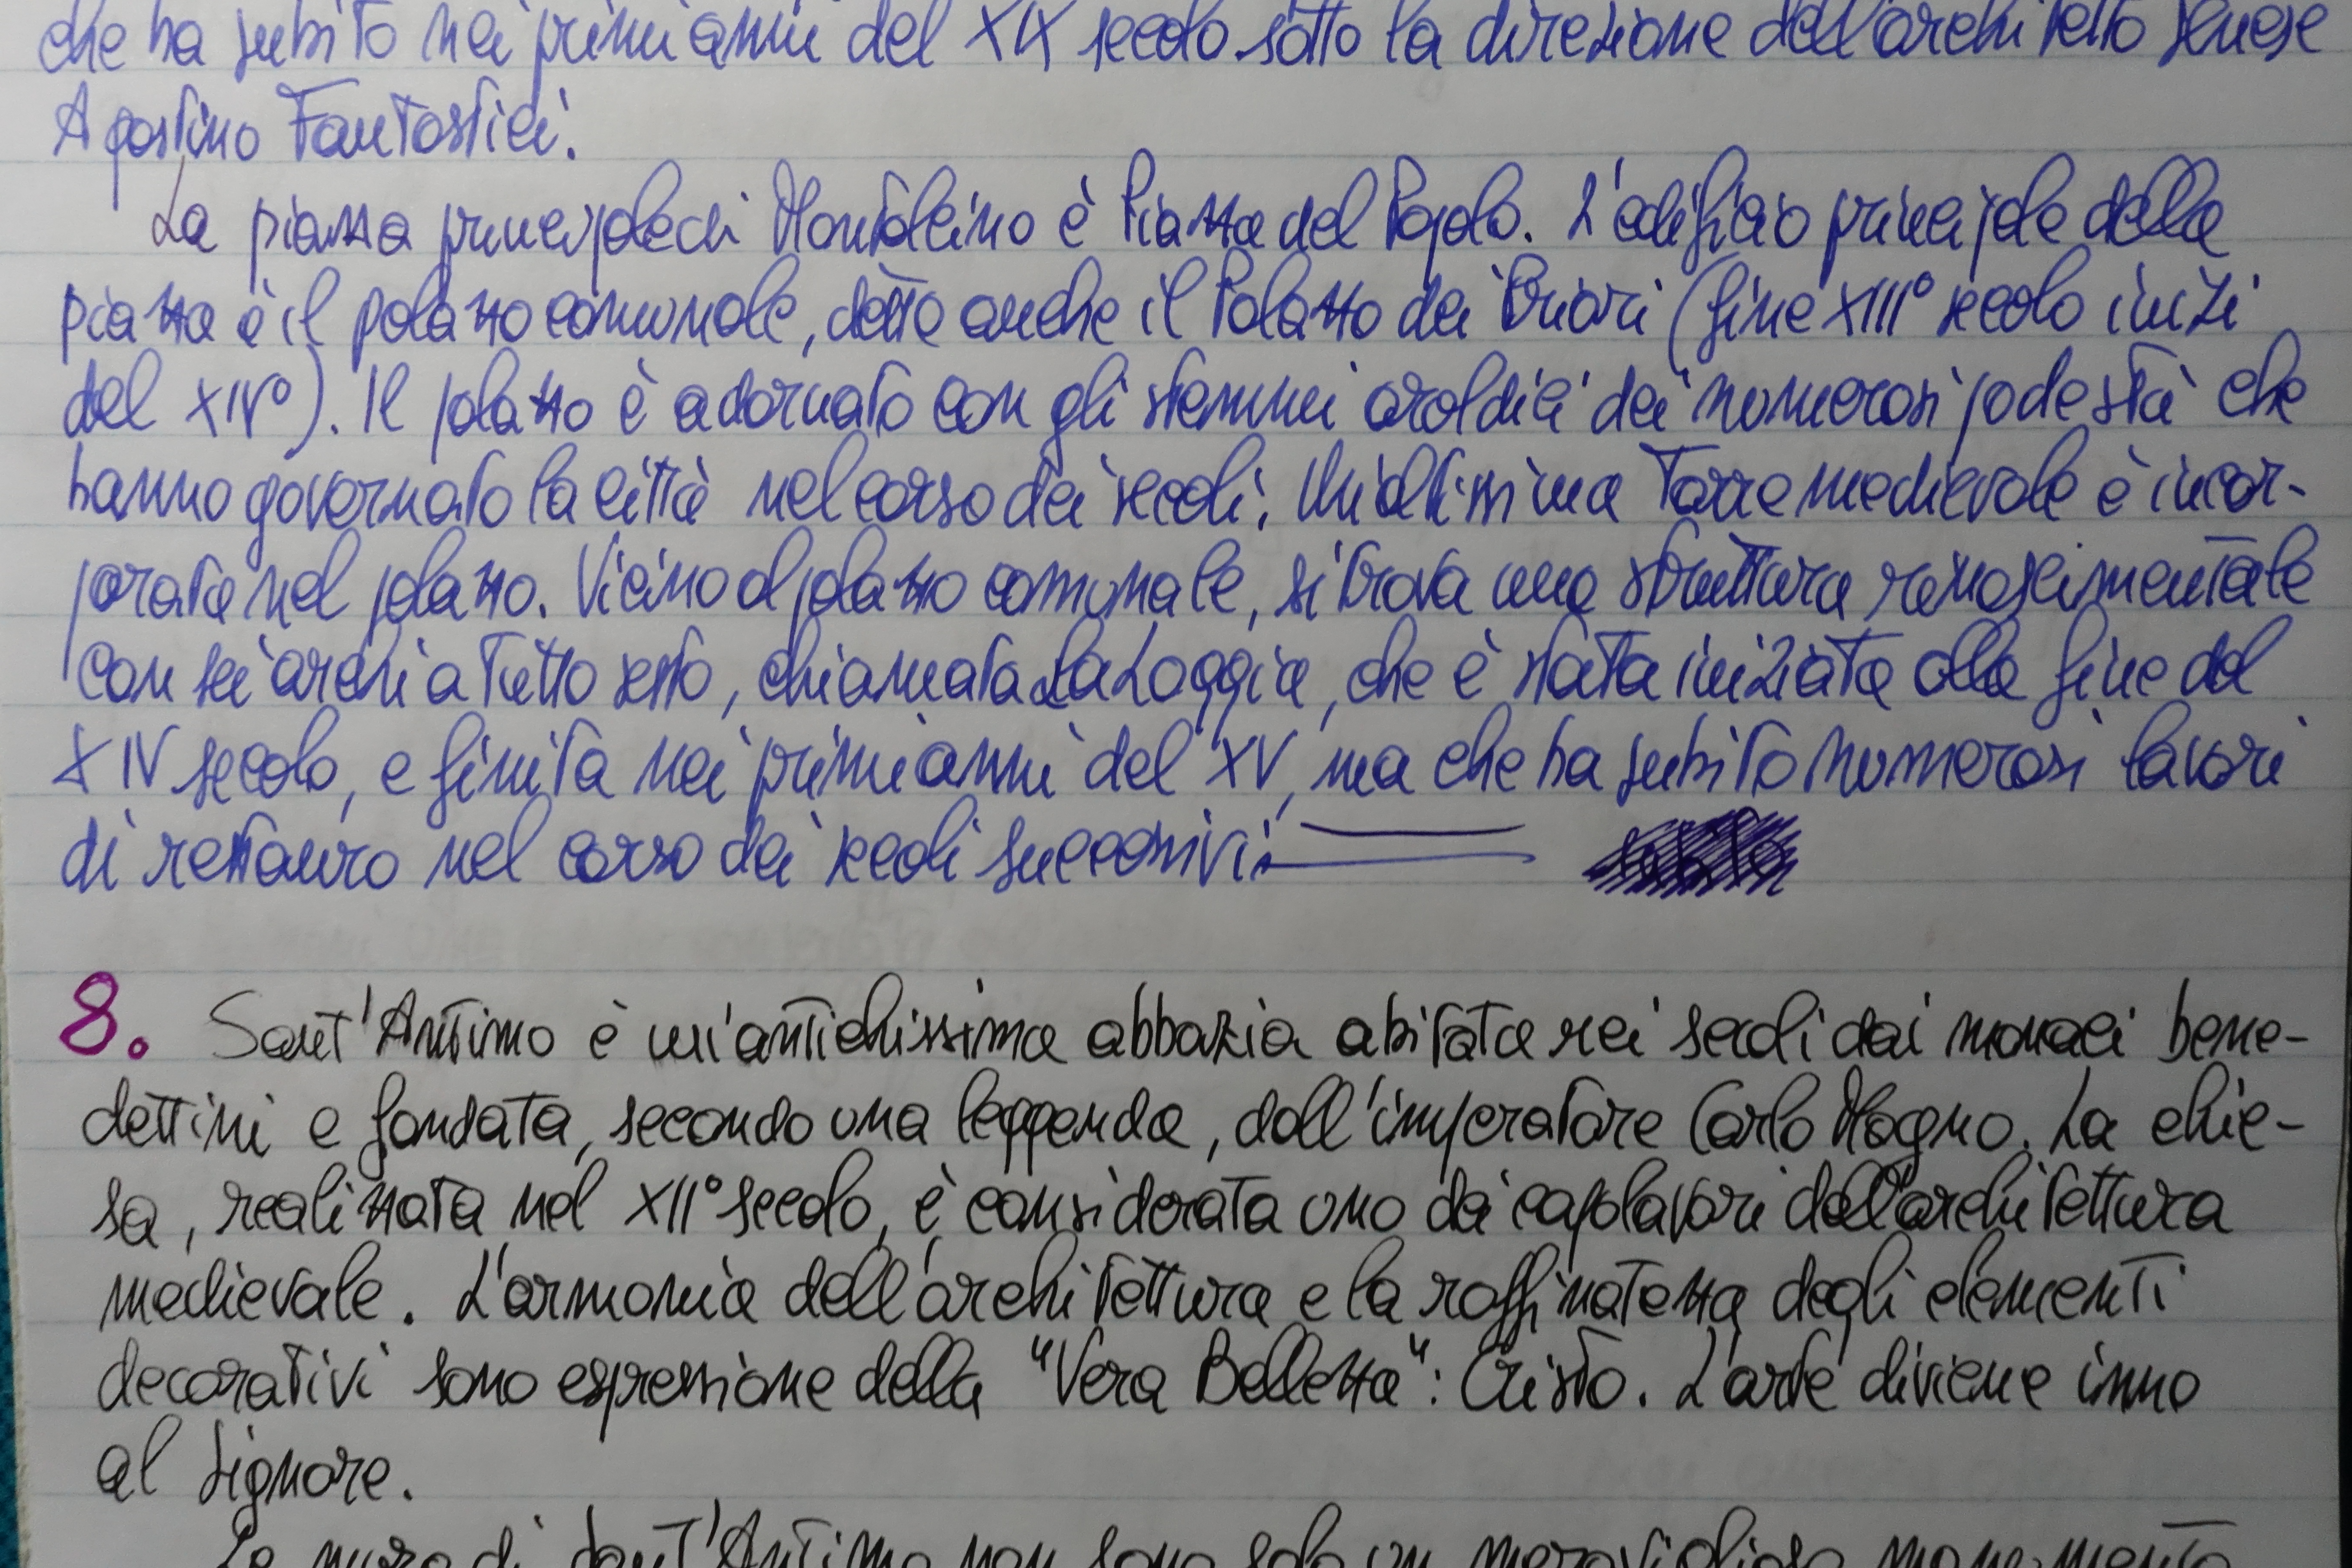 che ha subito nei primi anni del XIX secolo sotto la direzione dell'architetto senese
Agostino Fantastici.
La piazza principale di Montalcino è Piazza del Popolo. L'edificio principale della
piazza è il palazzo comunale, detto anche il Palazzo dei Priori (fine XIII° secolo inizi
del XIV°). Il palazzo è adornato con gli stemmi araldici dei numerosi podestà che
hanno governato la città nel corso dei secoli. Un'altissima Torre medievale è incor-
porata nel palazzo. Vicino al palazzo comunale, si trova una struttura rinascimentale
con sei archi a Tutto sesto, chiamata La Loggia, che è stata iniziata alla fine del
XIV secolo, e finita nei primi anni del XV, ma che ha subito numerosi lavori
di restauro nel corso dei secoli successivi.
8. Sant'Antimo è un'antichissima abbazia abitata nei secoli dai monaci bene-
dettini e fondata, secondo una leggenda, dall'imperatore Carlo Magno. La chie-
sa, realizzata nel XII° secolo, è considerata uno dei capolavori dell'architettura
medievale. L'armonia dell'architettura e la raffinatezza degli elementi
decorativi sono espressione della "Vera Bellezza": Cristo. L'arte diviene inno
al Signore.
Le mura di Sant'Antimo non sono solo un meraviglioso monumento